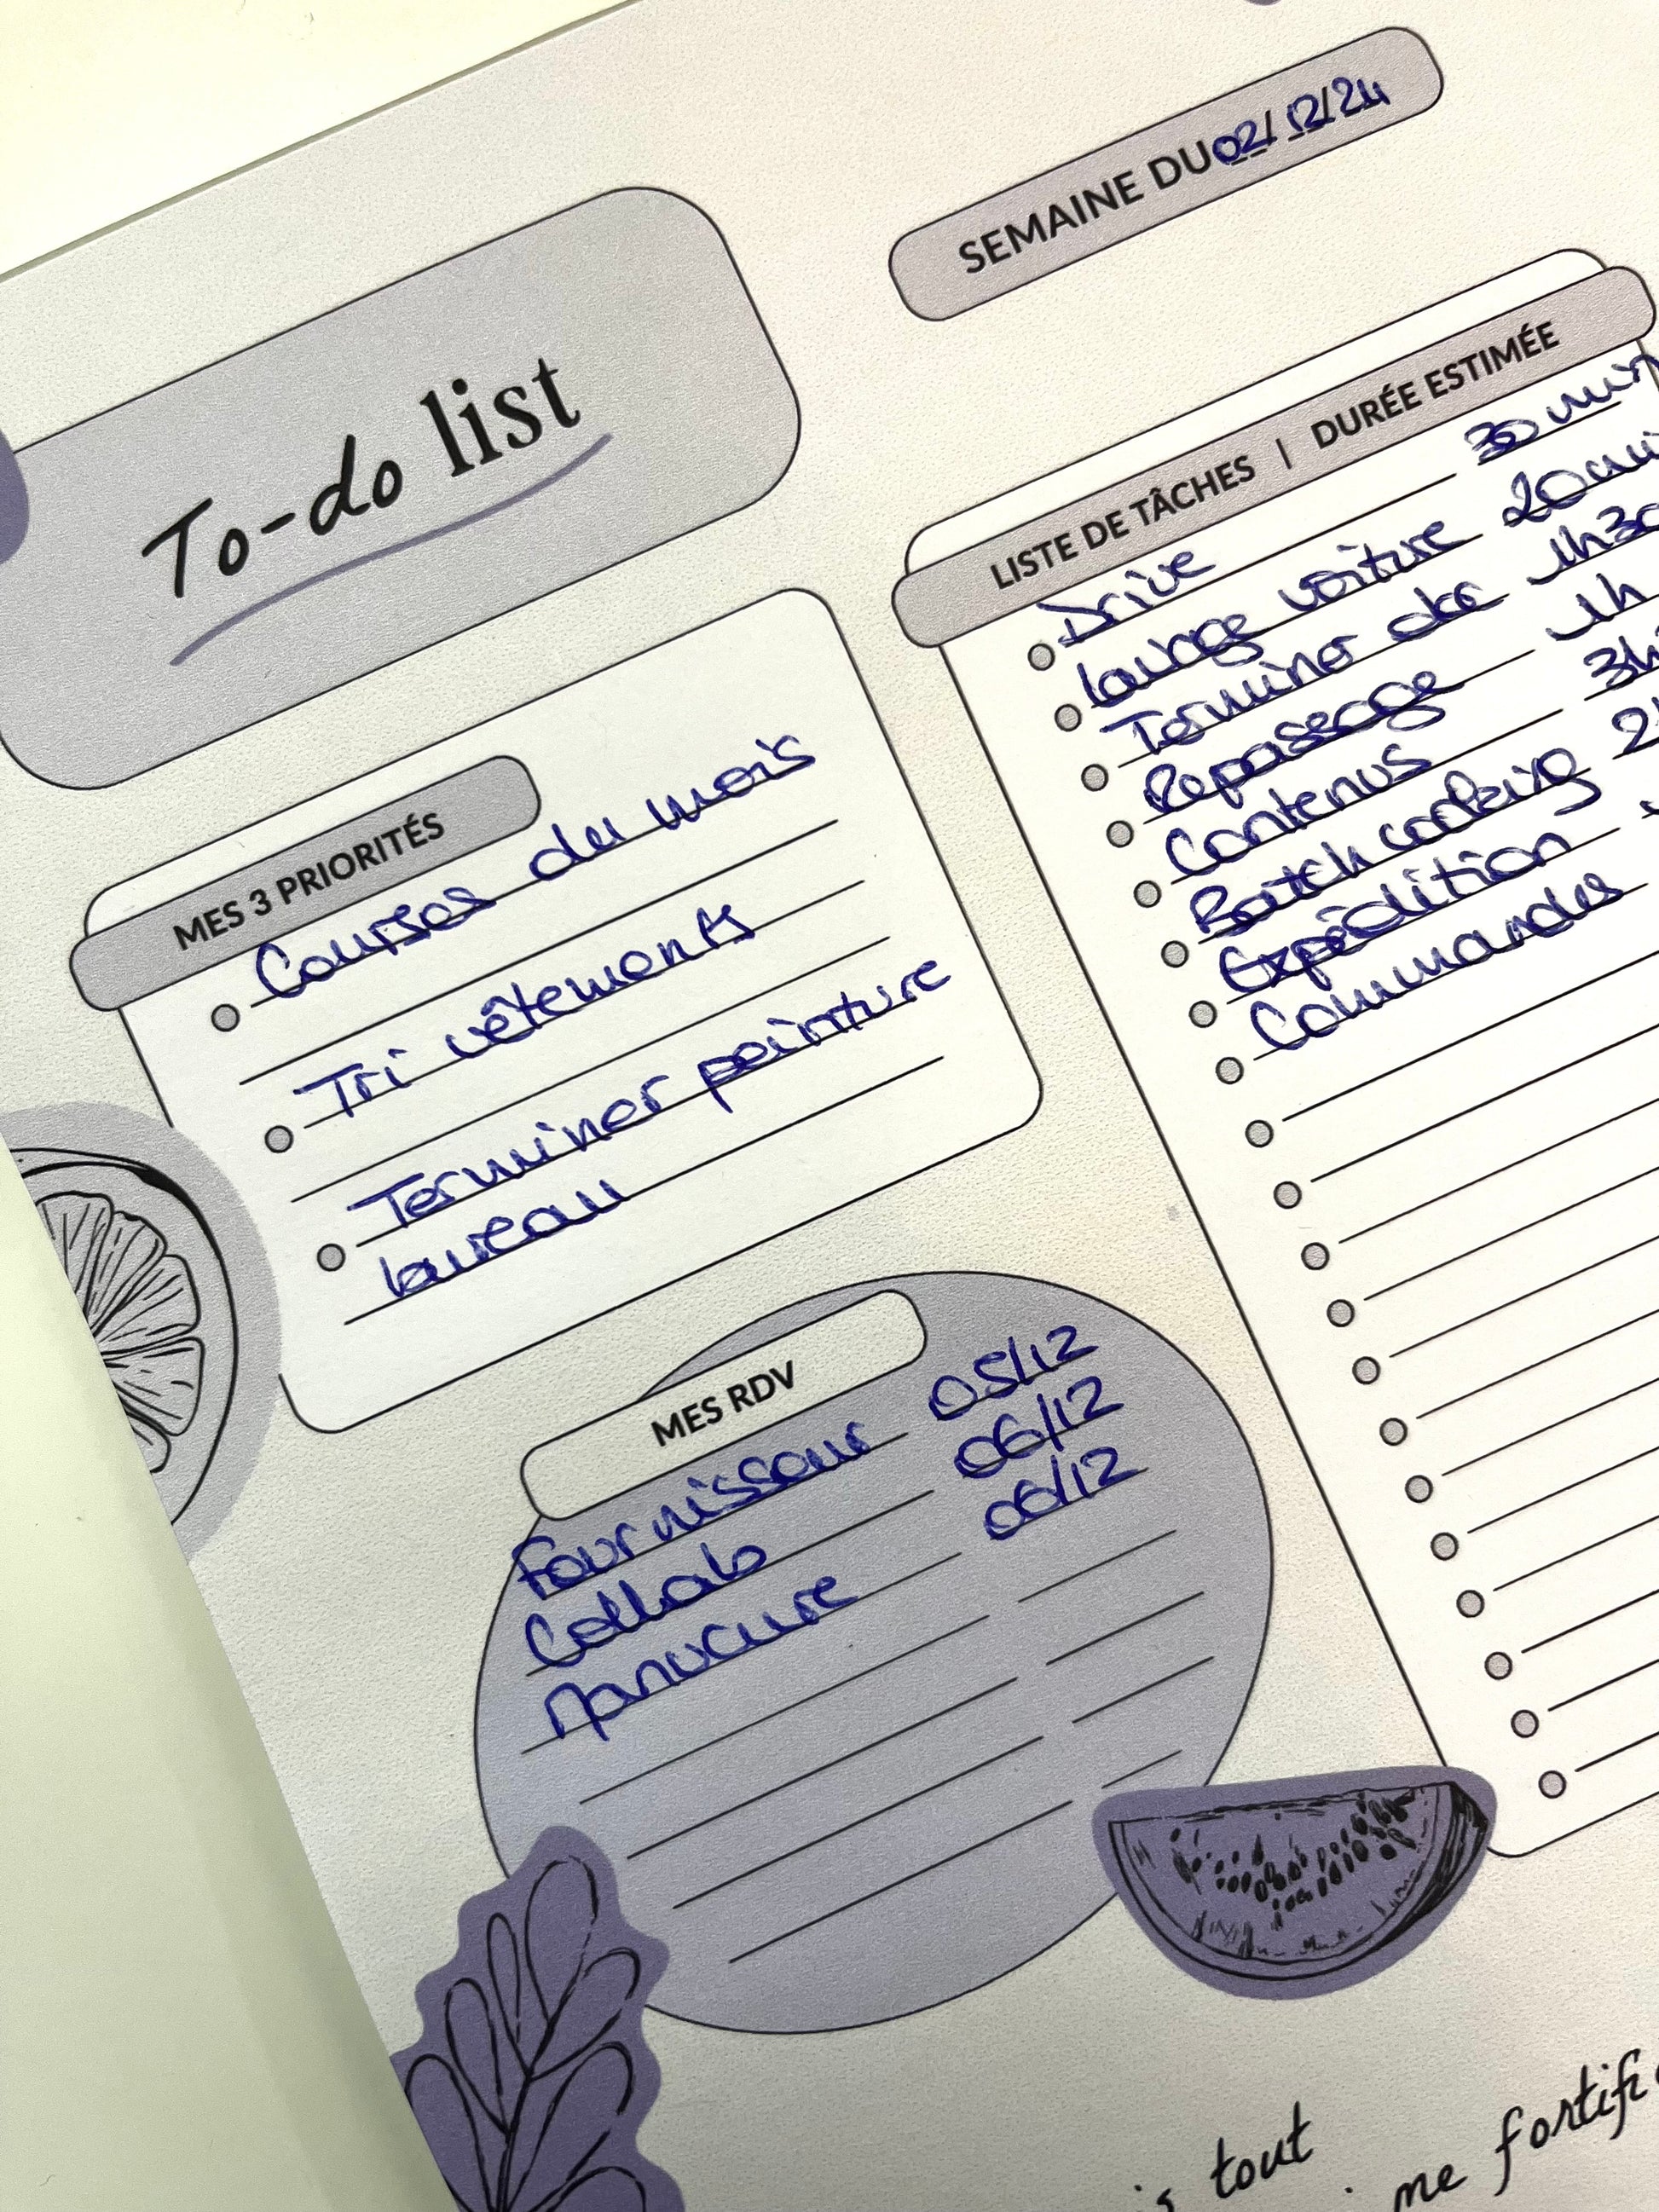 SEMAINE DU 02/12/24
To-do list
MES 3 PRIORITÉS
Courses du mois
Tri vêtements
Terminer peinture
bureau
MES RDV
Fournisseur 05/12
Collab 06/12
Manucure 06/12
LISTE DE TÂCHES | DURÉE ESTIMÉE
Drive 30 min
lavage voiture 20
Terminer 1h30
Repassage 1h
Contenus 3h
Batch cooking
Expédition
Commandes
tout
me